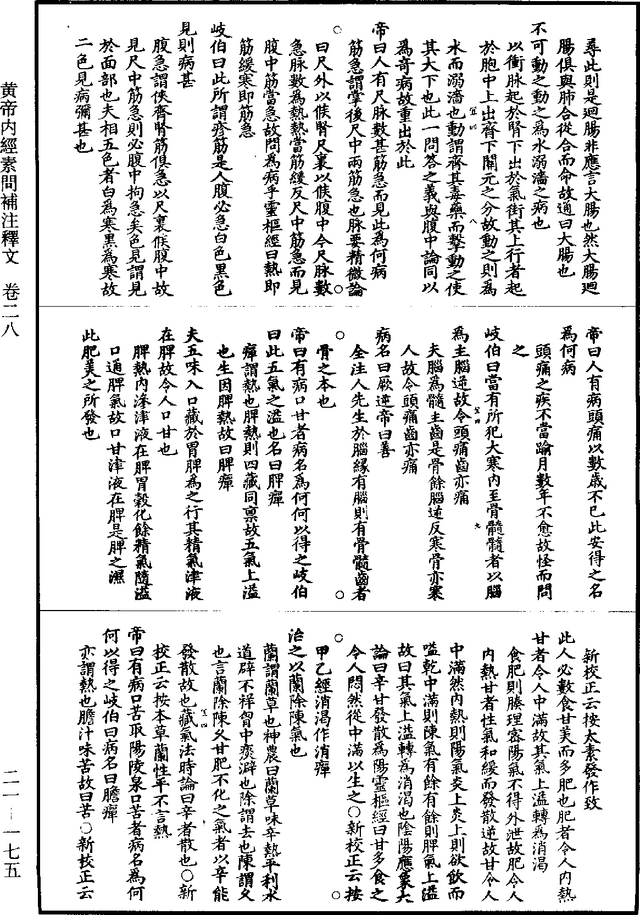 尋此則是迴腸非應言大腸也然大腸迴
腸俱與肺合從合而命故通曰大腸也
不可動之動之為水溺濇之病也
以衝脉起於腎下出於氣街其上行者起
於胞中上出齊下關元之分故動之則為
水而溺濇也動謂齊其毒藥而擊動之使
其大下也此一問答之義與腹中論同以
為奇病故重出於此
帝曰人有尺脉數甚筋急而見此為何病
筋急謂掌後尺中兩筋急也脉要精微論
曰尺外以候腎尺裏以候腹中今尺脉數
急脉數為熱熱當筋緩反尺中筋急而見
腹中筋當急故問為病乎靈樞經曰熱即
筋緩寒即筋急
岐伯曰此所謂疹筋是人腹必急白色黑色
見則病甚
腹急謂俠齊腎筋俱急以尺裏候腹中故
見尺中筋急則必腹中拘急矣色見謂見
於面部也夫相五色者白為寒黑為寒故
二色見病彌甚也
黄帝内經素問補注釋文 卷二八
帝曰人有病頭痛以數歲不已此安得之名
為何病
頭痛之疾不當踰月數年不愈故怪而問
之
岐伯曰當有所犯大寒内至骨髓髓者以腦
為主腦逆故令頭痛齒亦痛
夫腦為髓主齒是骨餘腦逆反寒骨亦寒
人故令頭痛齒亦痛
病名曰厥逆帝曰善
全注人先生於腦緣有腦則有骨髓齒者
骨之本也
帝曰有病口甘者病名為何何以得之岐伯
曰此五氣之溢也名曰脾癉
癉謂熱也脾熱則四藏同禀故五氣上溢
也生因脾熱故曰脾癉
夫五味入口藏於胃脾為之行其精氣津液
在脾故令人口甘也
脾熱内滲津液在脾胃穀化餘精氣隨溢
口通脾氣故口甘津液在脾是脾之濕
此肥美之所發也
新校正云按太素發作致
此人必數食甘美而多肥也肥者令人内熱
甘者令人中滿故其氣上溢轉為消渴
食肥則腠理密陽氣不得外泄故肥令人
内熱甘者性氣和緩而發散逆故甘令人
中滿然内熱則陽氣炎上炎上則欲飲而
嗌乾中滿則陳氣有餘有餘則脾氣上溢
故曰其氣上溢轉為消渴也陰陽應象大
論曰辛甘發散為陽靈樞經曰甘多食之
令人悶然從中滿以生之○新校正云按
甲乙經消渴作消癉
治之以蘭除陳氣也
蘭謂蘭草也神農曰蘭草味辛熱平利水
道辟不祥胷中痰澼也除謂去也陳謂久
也言蘭除陳久甘肥不化之氣者以辛能
發散故也藏氣法時論曰辛者散也○新
校正云按本草蘭性平不言熱
帝曰有病口苦取陽陵泉口苦者病名為何
何以得之岐伯曰病名曰膽癉
亦謂熱也膽汁味苦故曰苦○新校正云
二一—一七五